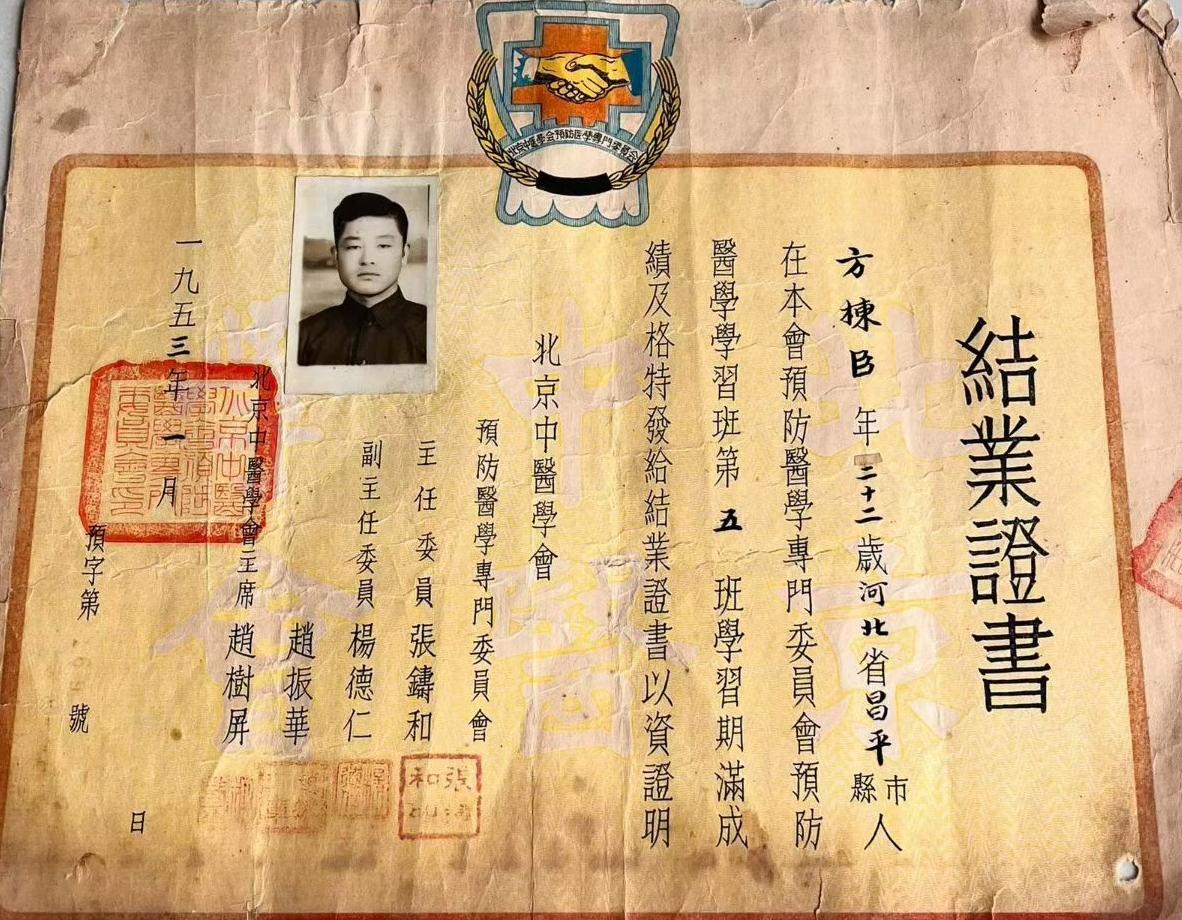 北京中醫學会預防医學專門委員会
結業證書
方棟臣 年二十二歲河北省昌平市縣人
在本會預防醫學專門委員會預防
醫學學習班第五班學習期滿成
績及格特發給結業證書以資證明
北京中醫學會
預防醫學專門委員會
主任委員 張鑄和
副主任委員 楊德仁
趙振華
北京中醫學會主席 趙樹屏
一九五三年一月 日
預字第 號
北京中醫學會